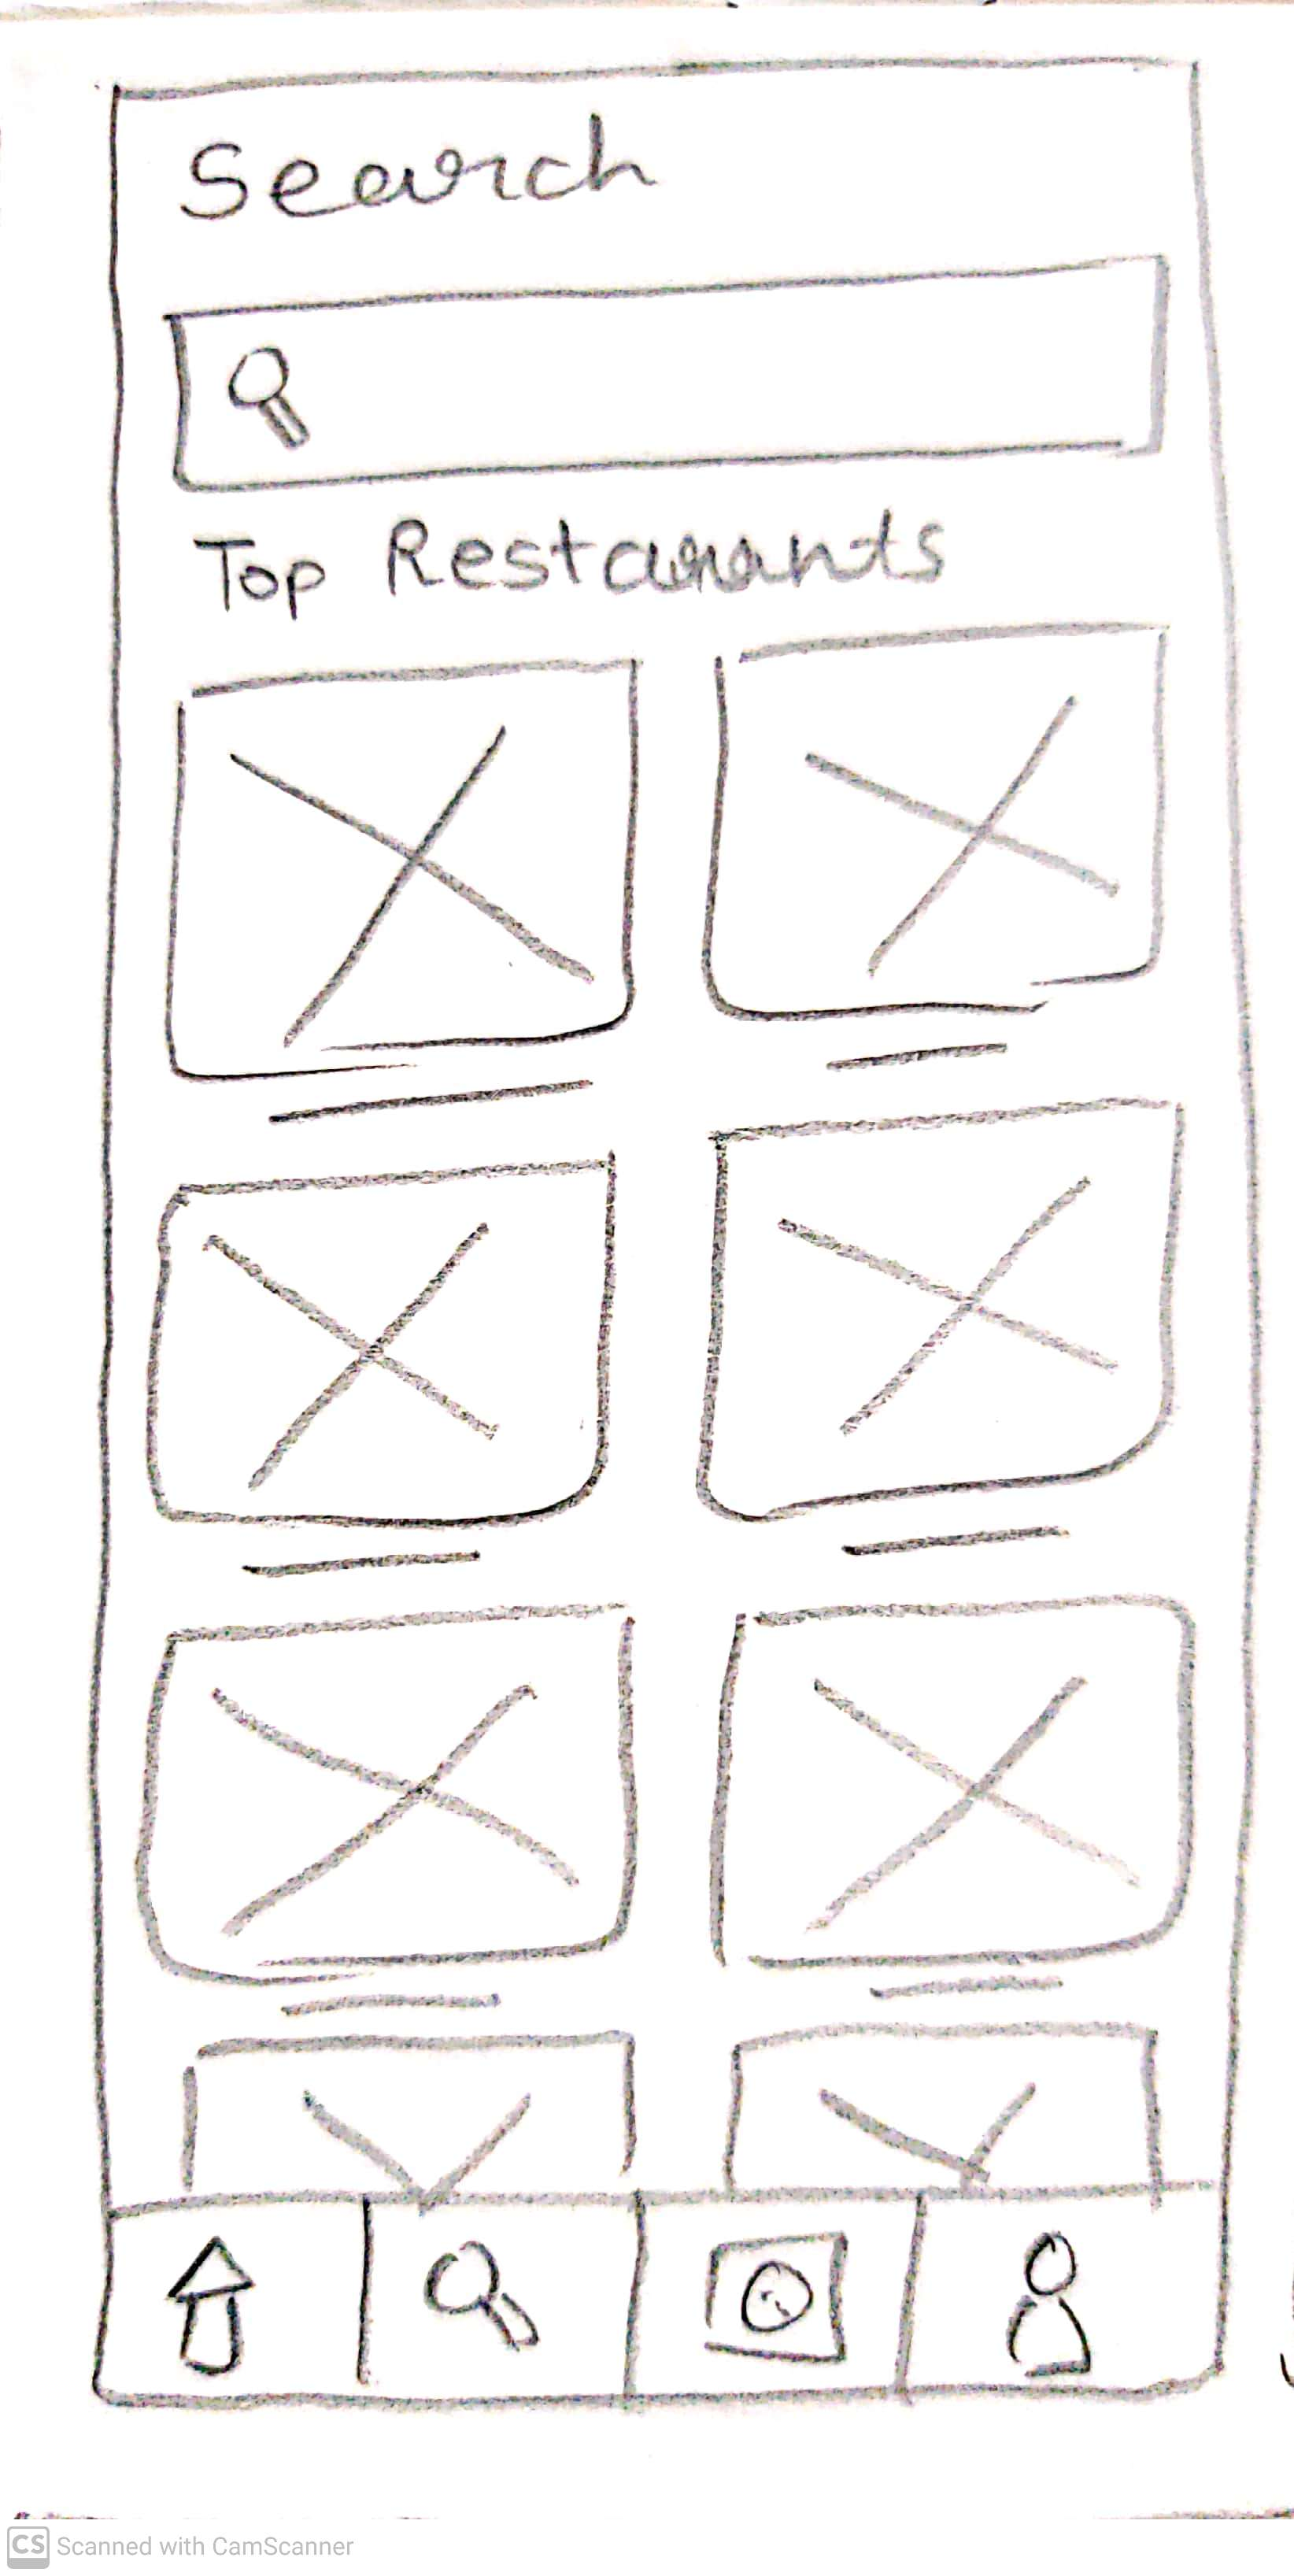 Search
Top Restaurants
CS Scanned with CamScanner